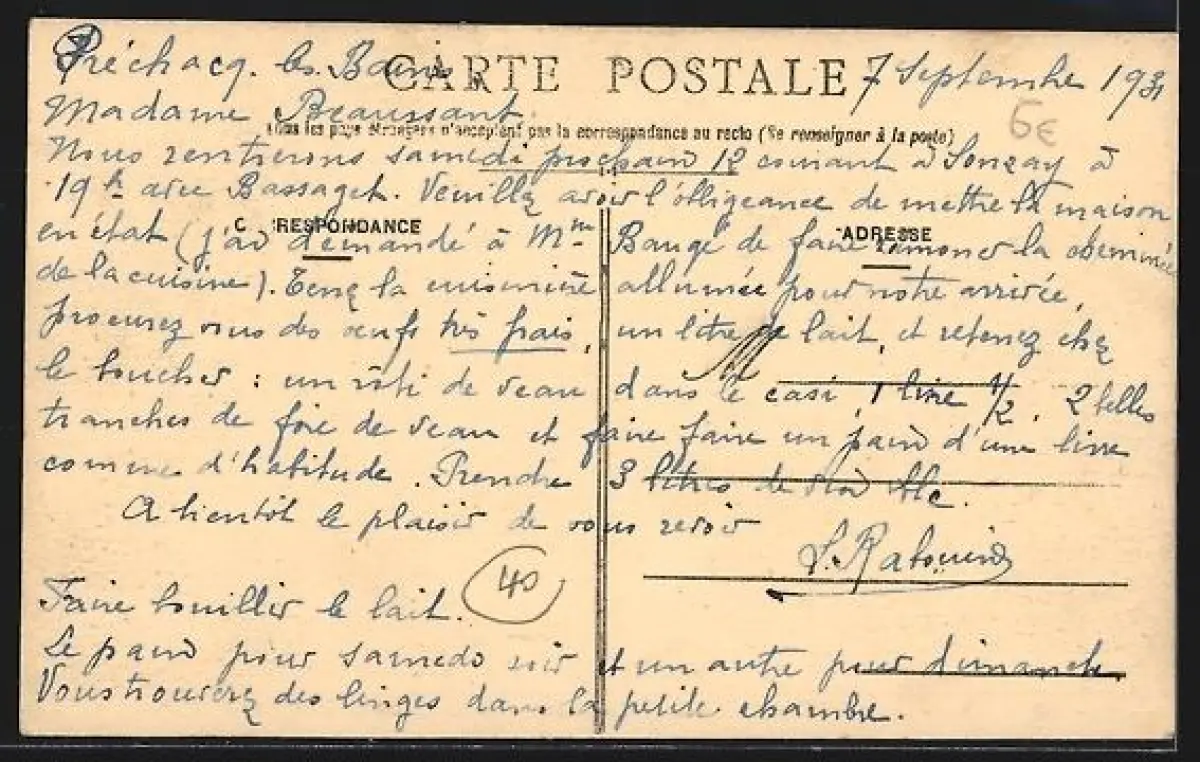 Préchacq. les. Bains.
CARTE POSTALE
7 Septembre 1931
Madame Beaussant.
Tous les pays étrangers n'acceptent pas la correspondance au recto (Se renseigner à la poste)
6€
Nous rentrerons samedi prochain 12 courant à Sonzay à
19h avec Bassaget. Veuillez avoir l'obligeance de mettre la maison
CORRESPONDANCE
ADRESSE
en état (j'ai demandé à Mme Baugé de faire ramoner la cheminée
de la cuisine). Tenez la cuisinière allumée pour notre arrivée,
procurez vous des œufs très frais, un litre de lait, et retenez chez
le boucher : un rôti de veau dans le casi, 1 livre 1/2. 2 belles
tranches de foie de veau et faire faire un pain d'une livre
comme d'habitude. Prendre 3 litres de
A bientôt le plaisir de vous revoir
40
Faire bouillir le lait.
Le pain pour samedi soir et un autre pour dimanche.
Vous trouverez des linges dans la petite chambre.